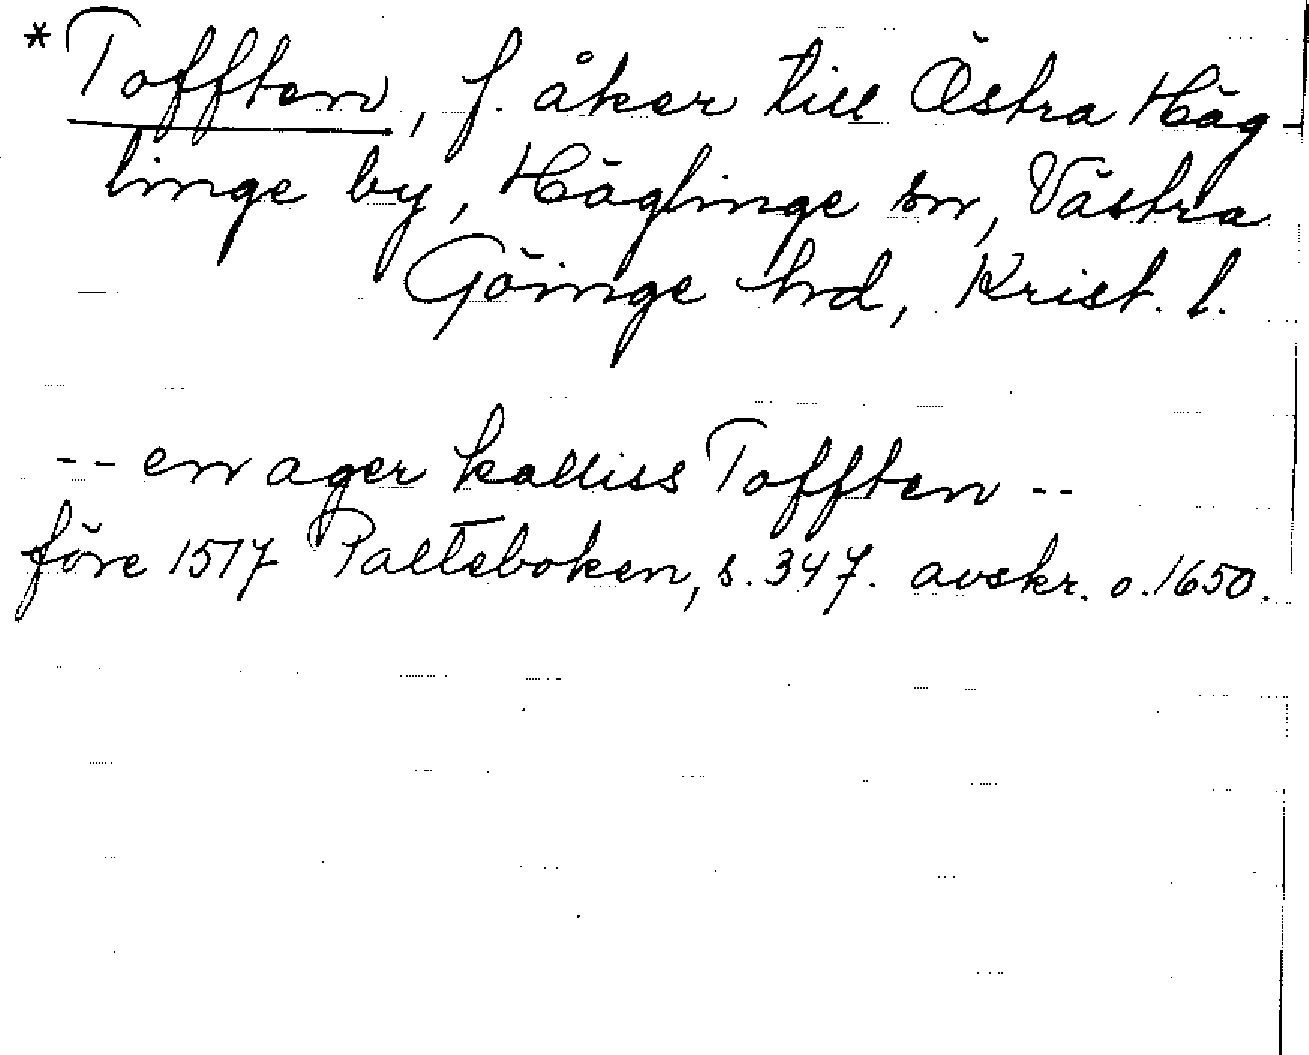 *Tofften, f. åker till Östra Häg-
linge by, Häglinge sn, Västra
Göinge hrd, Krist. l.
-- en ager kalliss Tofften --
före 1517 Palteboken, s. 347. avskr. o. 1650.